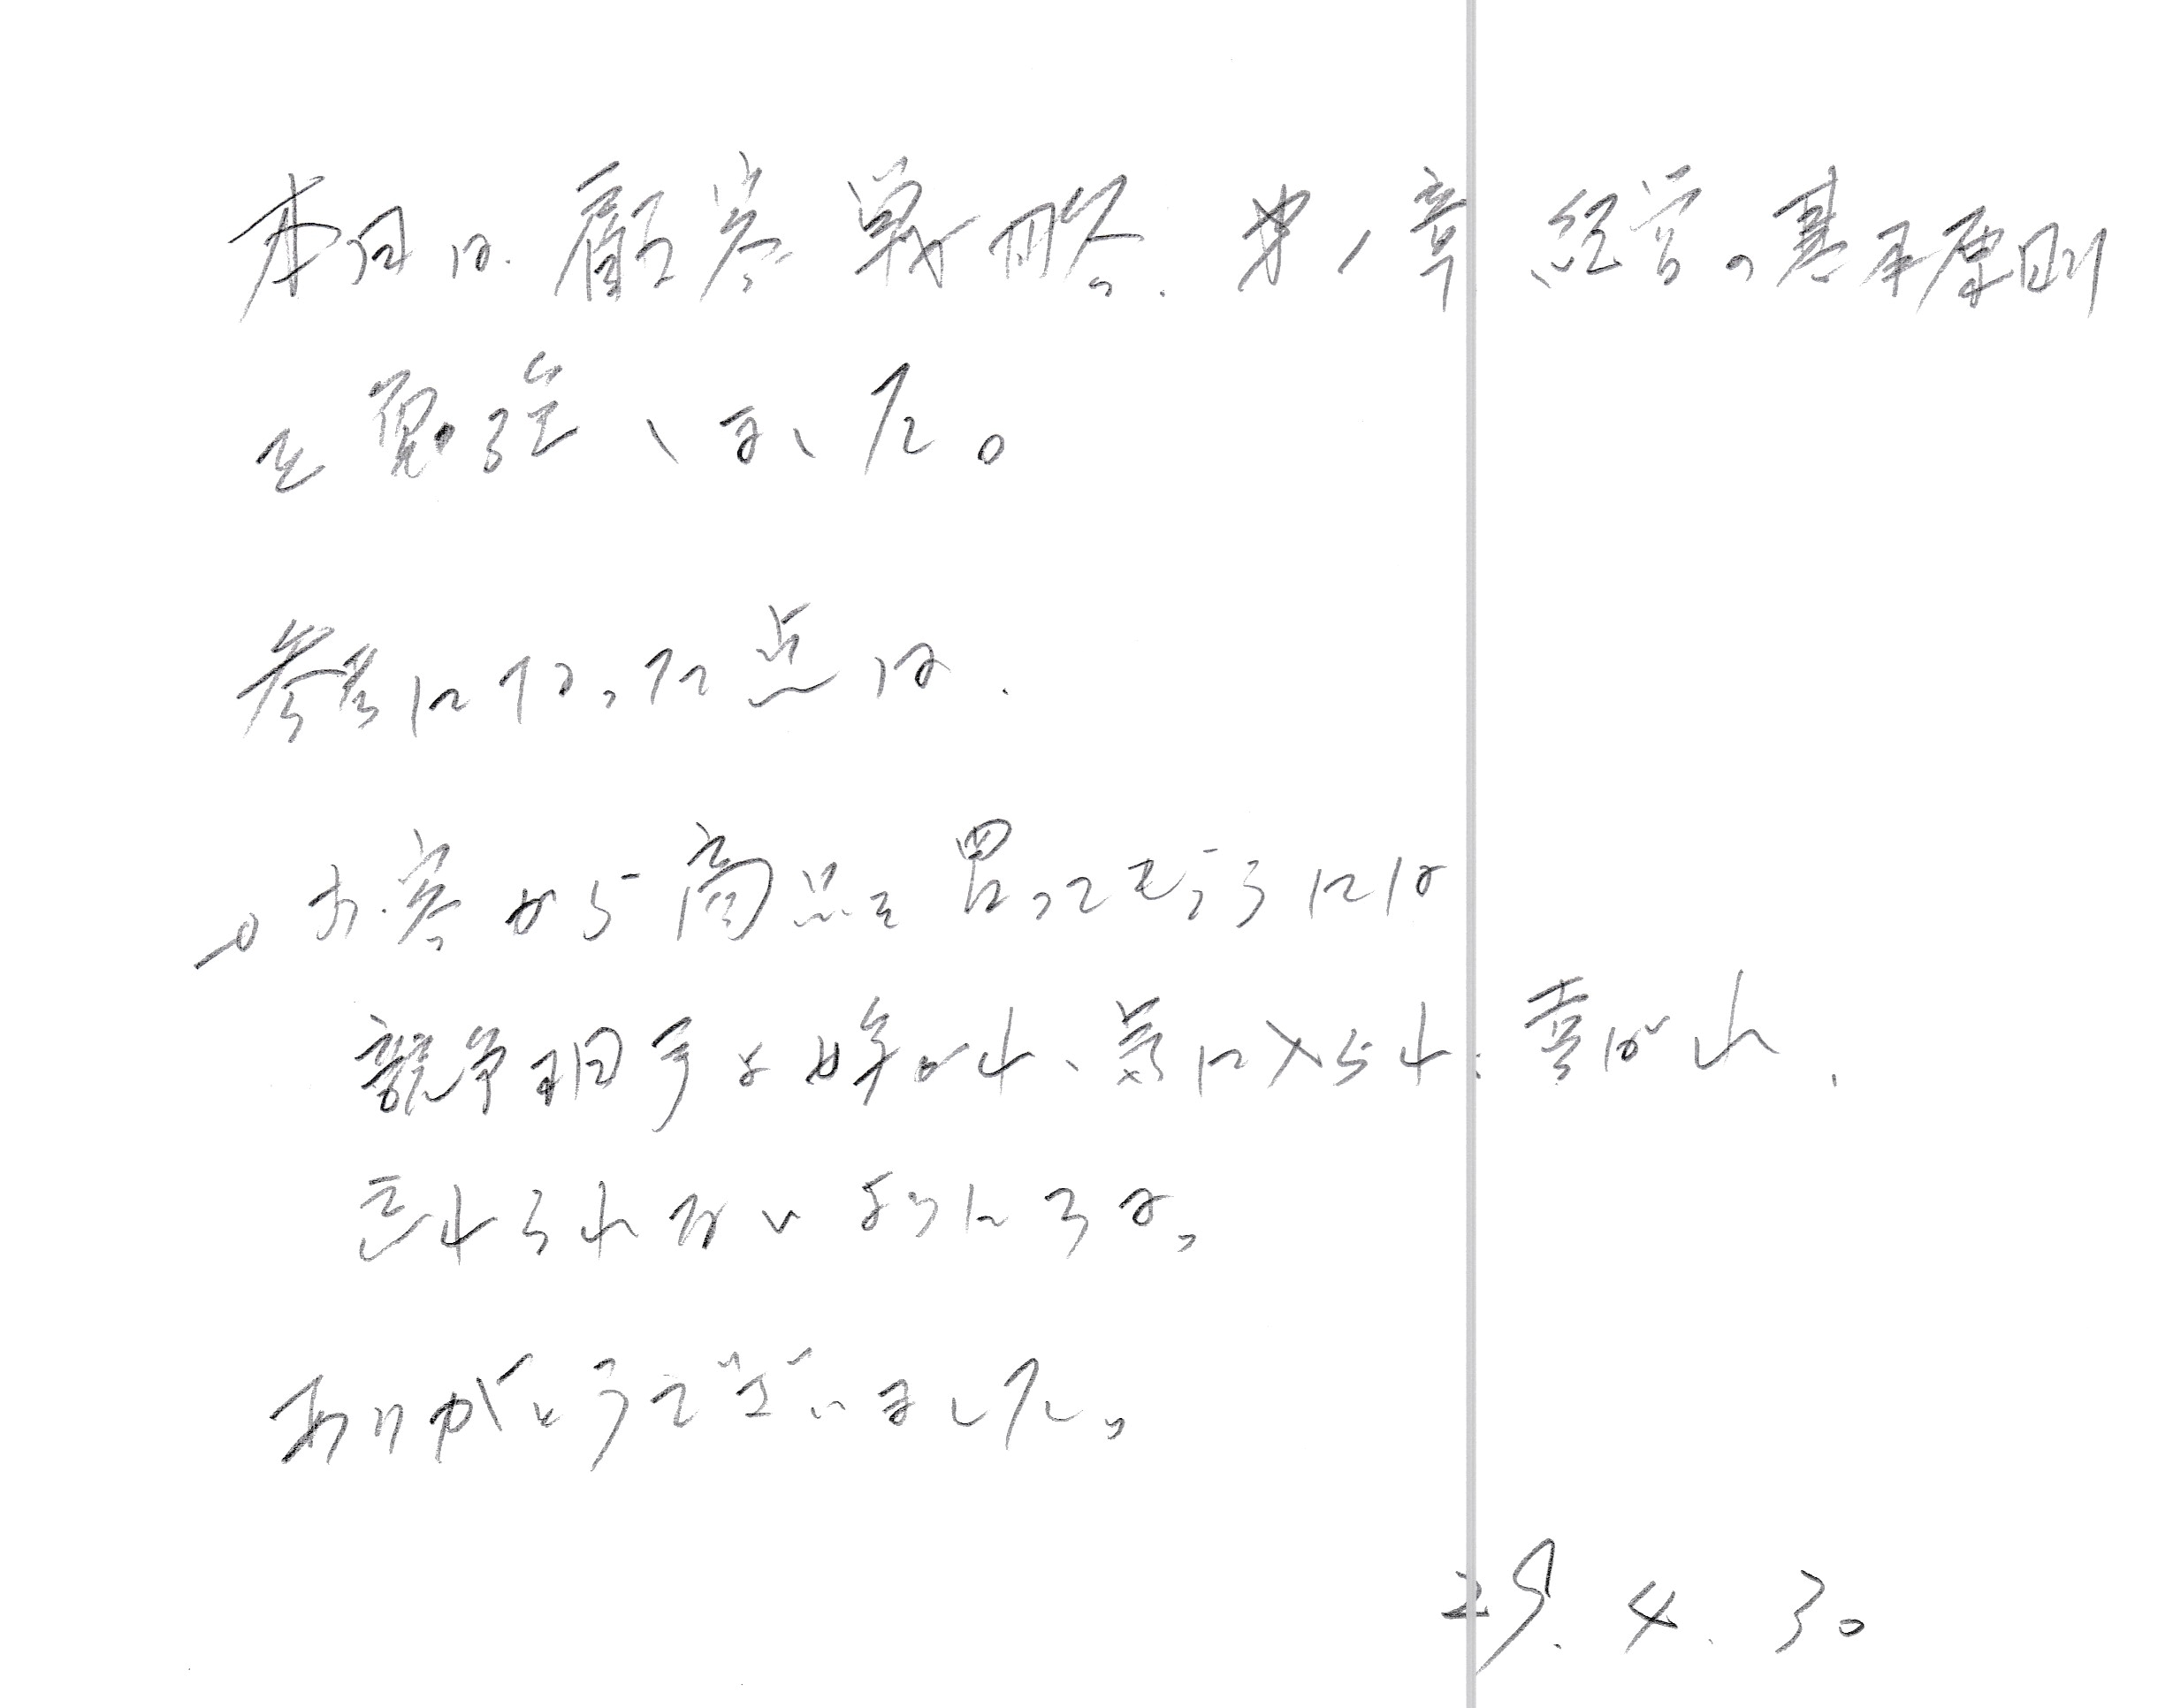 本日は、顧客戦略、第1章 経営の基本原則
を勉強しました。
参考になった点は、
→お客から商品を買ってもらうには
競争相手よ 好かれ、気に入られ、喜ばれ、
忘れられないようにする。
ありがとうございました。
25.4.30